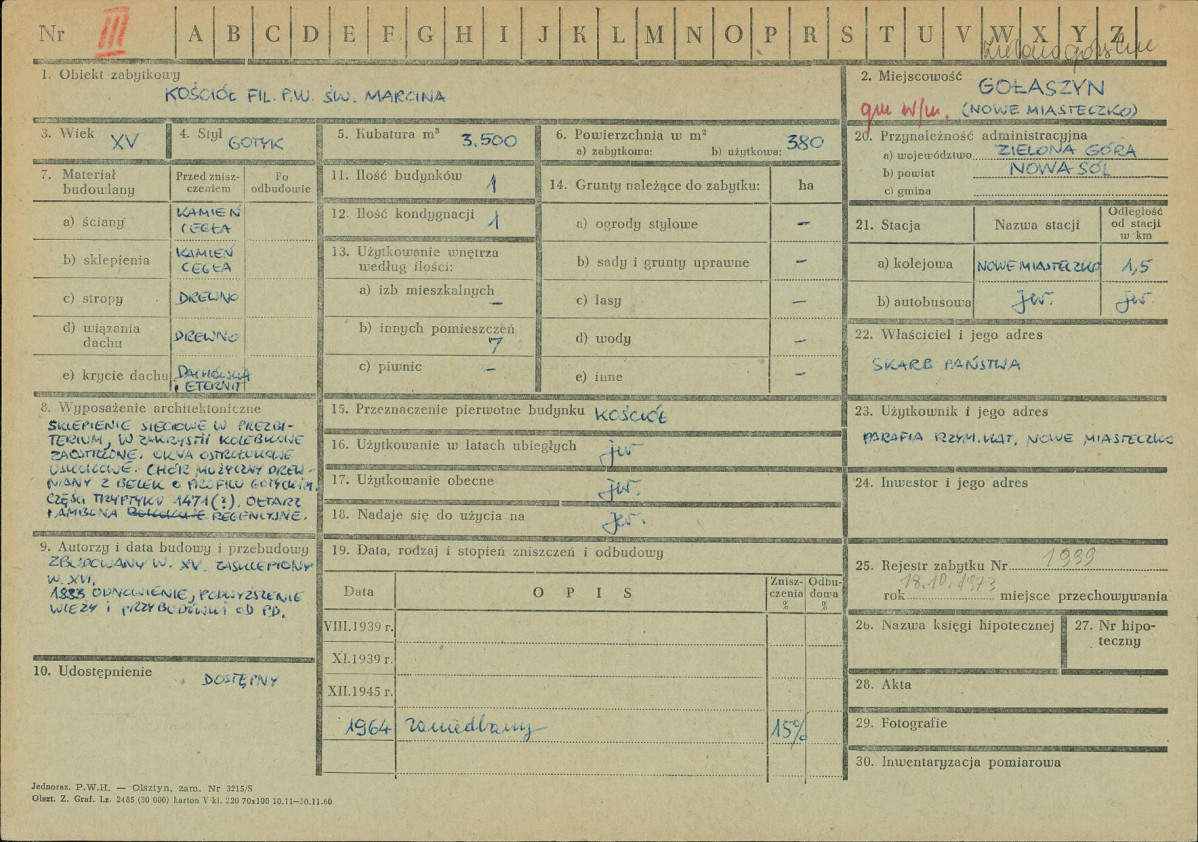 Nr III A B C D E F G H I J K L M N O P R S T U V W X Y Z
1. Obiekt zabytkowy
KOŚCIÓŁ FIL. P.W. ŚW. MARCINA
2. Miejscowość
GOŁASZYN
gm w/m. (NOWE MIASTECZKO)
3. Wiek XV
4. Styl GOTYK
5. Kubatura m³ 3.500
6. Powierzchnia w m²
a) zabytkowa: b) użytkowa: 380
7. Materiał budowlany
Przed zniszczeniem
Po odbudowie
a) ściany KAMIEŃ CEGŁA
b) sklepienia KAMIEŃ CEGŁA
c) stropy DREWNO
d) wiązania dachu DREWNO
e) krycie dachu DACHÓWKA I ETERNIT
8. Wyposażenie architektoniczne
SKLEPIENIE SIECIOWE W PREZBI-
TERIUM, W ZAKRYSTII KOLEBKOWE
ZAOSTRZONE. OKNA OSTROŁUKOWE
USKOKOWE. CHÓR MUZYCZNY DREW-
NIANY Z BELEK O PROFILU GOTYCKIM.
CZĘŚCI TRYPTYKU 1471(?). OŁTARZ
I AMBONA REGENCYJNE.
9. Autorzy i data budowy i przebudowy
ZBUDOWANY W. XV. ZASKLEPIONY
W. XVI.
1883 ODNOWIENIE, PODWYŻSZENIE
WIEŻY I PRZYBUDÓWKI OD PD.
10. Udostępnienie DOSTĘPNY
11. Ilość budynków 1
12. Ilość kondygnacji 1
13. Użytkowanie wnętrza
według ilości:
a) izb mieszkalnych –
b) innych pomieszczeń 7
c) piwnic –
14. Grunty należące do zabytku: ha
a) ogrody stylowe –
b) sady i grunty uprawne –
c) lasy –
d) wody –
e) inne –
15. Przeznaczenie pierwotne budynku KOŚCIÓŁ
16. Użytkowanie w latach ubiegłych jw.
17. Użytkowanie obecne jw.
18. Nadaje się do użycia na jw.
19. Data, rodzaj i stopień zniszczeń i odbudowy
Data OPIS Zniszczenia % Odbudowa %
VIII.1939 r.
XI.1939 r.
XII.1945 r.
1964 zaniedbany 15%
20. Przynależność administracyjna
a) województwo ZIELONA GÓRA
b) powiat NOWA SÓL
c) gmina
21. Stacja Nazwa stacji Odległość od stacji w km
a) kolejowa NOWE MIASTECZKO 1,5
b) autobusowa jw. jw.
22. Właściciel i jego adres
SKARB PAŃSTWA
23. Użytkownik i jego adres
PARAFIA RZYM. KAT. NOWE MIASTECZKO
24. Inwestor i jego adres
25. Rejestr zabytku Nr 1999
rok 18.10.1973 miejsce przechowywania
26. Nazwa księgi hipotecznej
27. Nr hipoteczny
28. Akta
29. Fotografie
30. Inwentaryzacja pomiarowa
Jednoraz. P.W.H. — Olsztyn, zam. Nr 3215/S
Olszt. Z. Graf. Lz. 2485 (30 000) karton V kl. 220 70x100 10.11—30.11.60